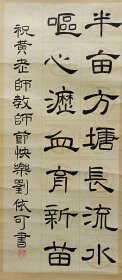 半亩方塘長流水
嘔心瀝血育新苗
祝黄老師教師節快樂劉依可書